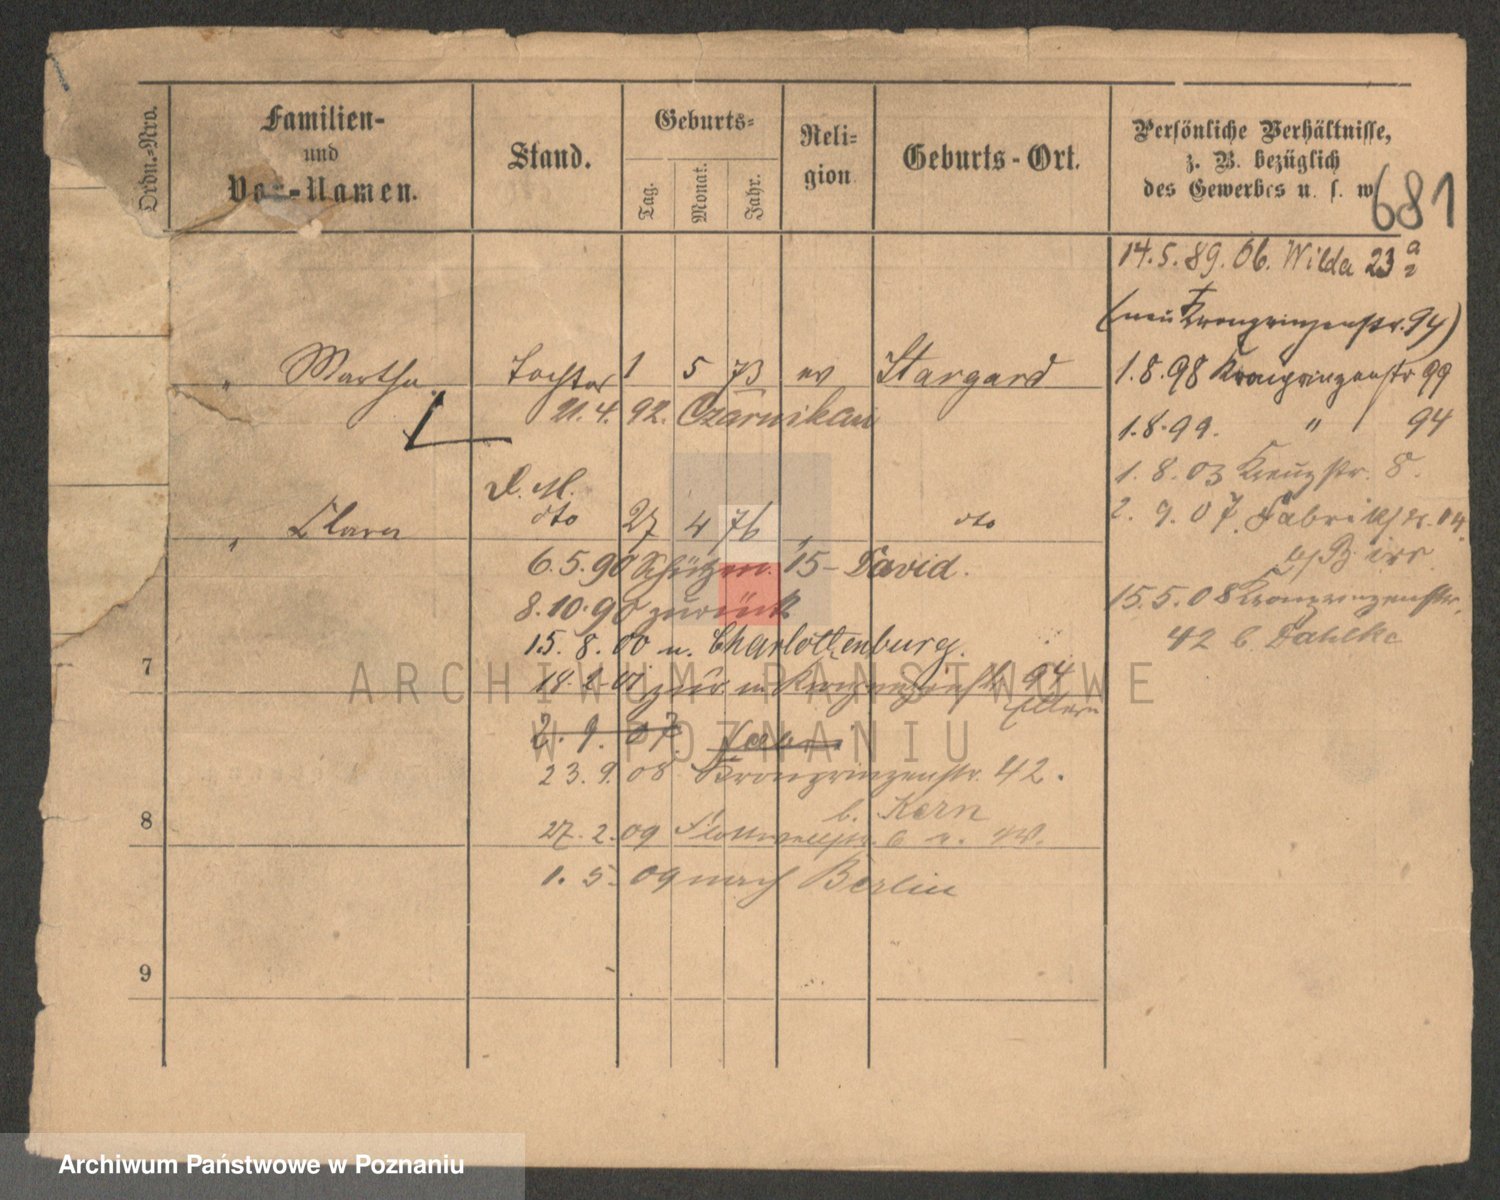 Ordn.-Nro.
Familien-
und
Vor-Namen.
Stand.
Geburts-
Tag.
Monat.
Jahr.
Reli-
gion
Geburts-Ort.
Persönliche Verhältnisse,
z. B. bezüglich
des Gewerbes u. s. w.
681
14.5.89. Ob. Wilda 23 a
2
(neu Kronprinzenstr. 94)
" Martha Tochter 1 5 73 ev Stargard
1.8.98 Kronprinzenstr 99
21.4.92. Czarnikau
1.8.99. " 94
1.8.03 Kreuzstr. 8.
D. M.
" Clara dto 27 4 76 " dto
2.9.07. Fabrikstr.
6.5.90 Schützen. 15 - David.
8.10.90 zurück
15.5.08 Kronprinzenstr.
42 b. Dahlke
15.8.00 n. Charlottenburg.
7
zur. 94
Eltern
2.9.07.
23.9.08 Kronprinzenstr. 42.
b. Kern
8
27.2.09 Flottwellstr.
1.5.09 nach Berlin
9
ARCHIWUM PAŃSTWOWE
W POZNANIU
Archiwum Państwowe w Poznaniu